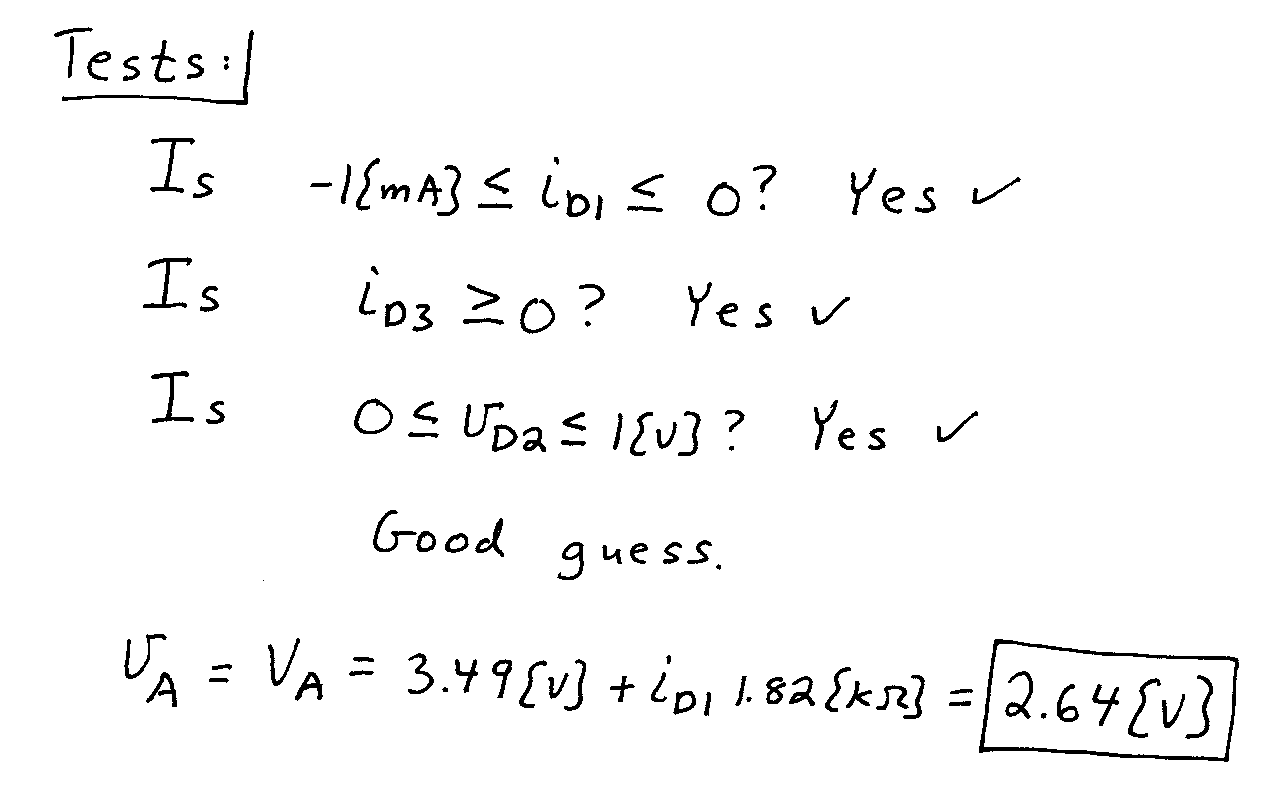 Tests:
Is -1{mA} ≤ iD1 ≤ 0? Yes ✓
Is iD3 ≥ 0? Yes ✓
Is 0 ≤ vD2 ≤ 1{v}? Yes ✓
Good guess.
vA = VA = 3.49{v} + iD1 1.82{kΩ} = 2.64{v}